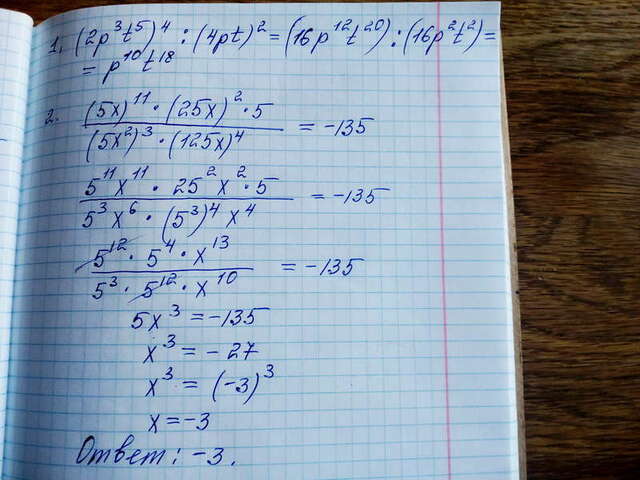 1. (2p³t⁵)⁴ : (4pt)² = (16p¹²t²⁰) : (16p²t²) =
= p¹⁰t¹⁸
2. (5x)¹¹ · (25x)² · 5 / (5x²)³ · (125x)⁴ = -135
5¹¹x¹¹ · 25²x² · 5 / 5³x⁶ · (5³)⁴x⁴ = -135
5¹² · 5⁴ · x¹³ / 5³ · 5¹² · x¹⁰ = -135
5x³ = -135
x³ = -27
x³ = (-3)³
x = -3
Ответ: -3.